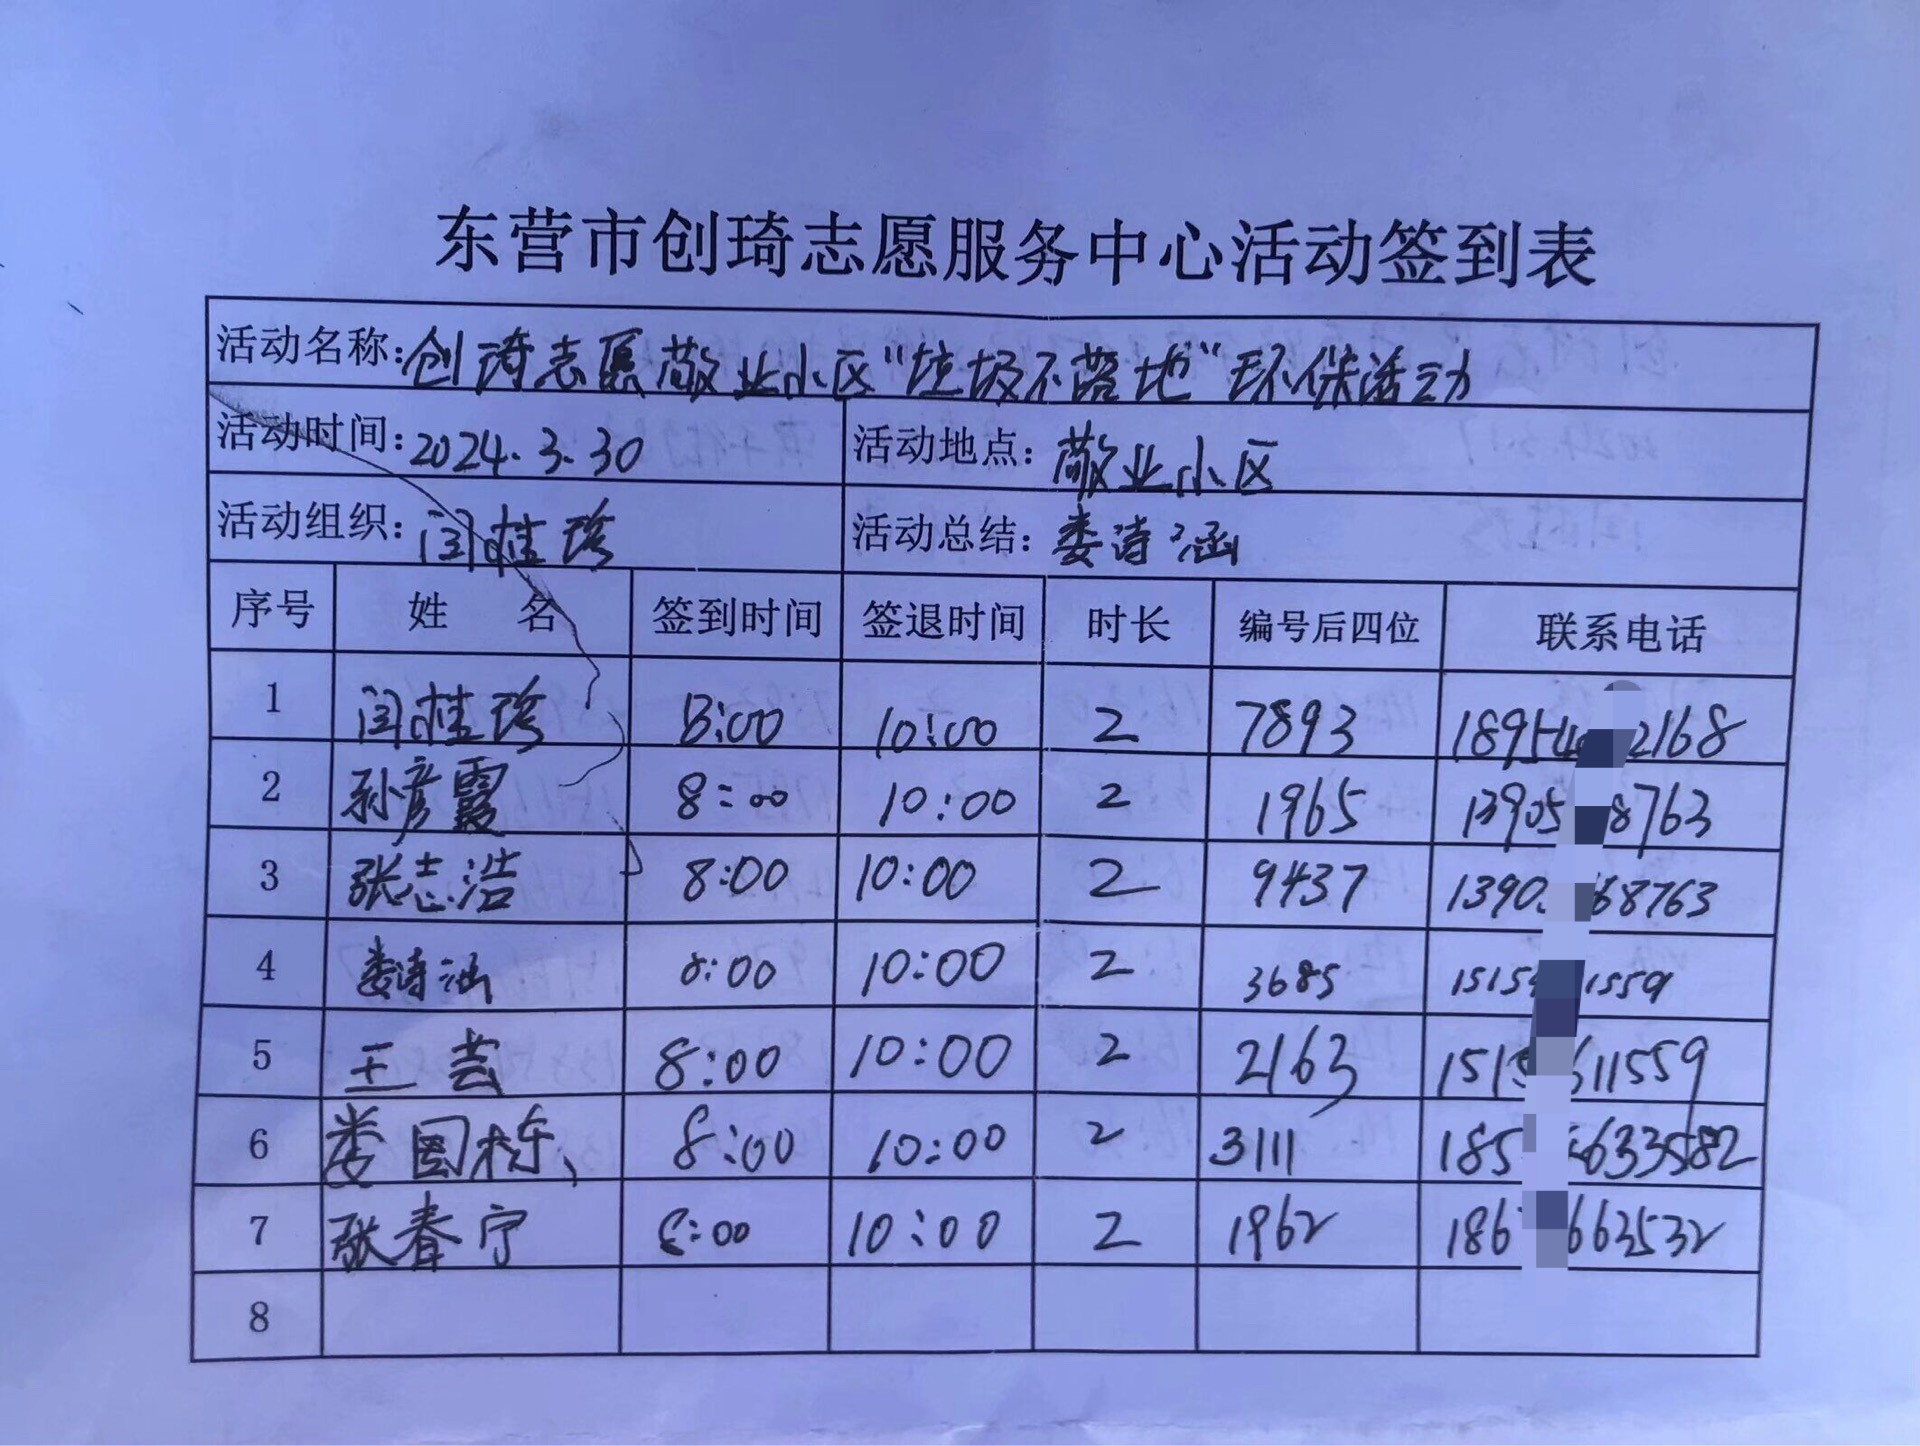 东营市创琦志愿服务中心活动签到表
活动名称:创琦志愿敬业小区“垃圾不落地”环保活动
活动时间:2024.3.30 活动地点:敬业小区
活动组织:闫桂珍 活动总结:娄诗涵
序号 姓名 签到时间 签退时间 时长 编号后四位 联系电话
1 闫桂珍 8:00 10:00 2 7893 18954 2168
2 孙彦霞 8:00 10:00 2 1965 13905 8763
3 张志浩 8:00 10:00 2 9437 1390 68763
4 娄诗涵 8:00 10:00 2 3685 1515 1559
5 王芸 8:00 10:00 2 2163 151 611559
6 娄国栋 8:00 10:00 2 3111 185 6633582
7 张春宁 8:00 10:00 2 1962 186 663532
8